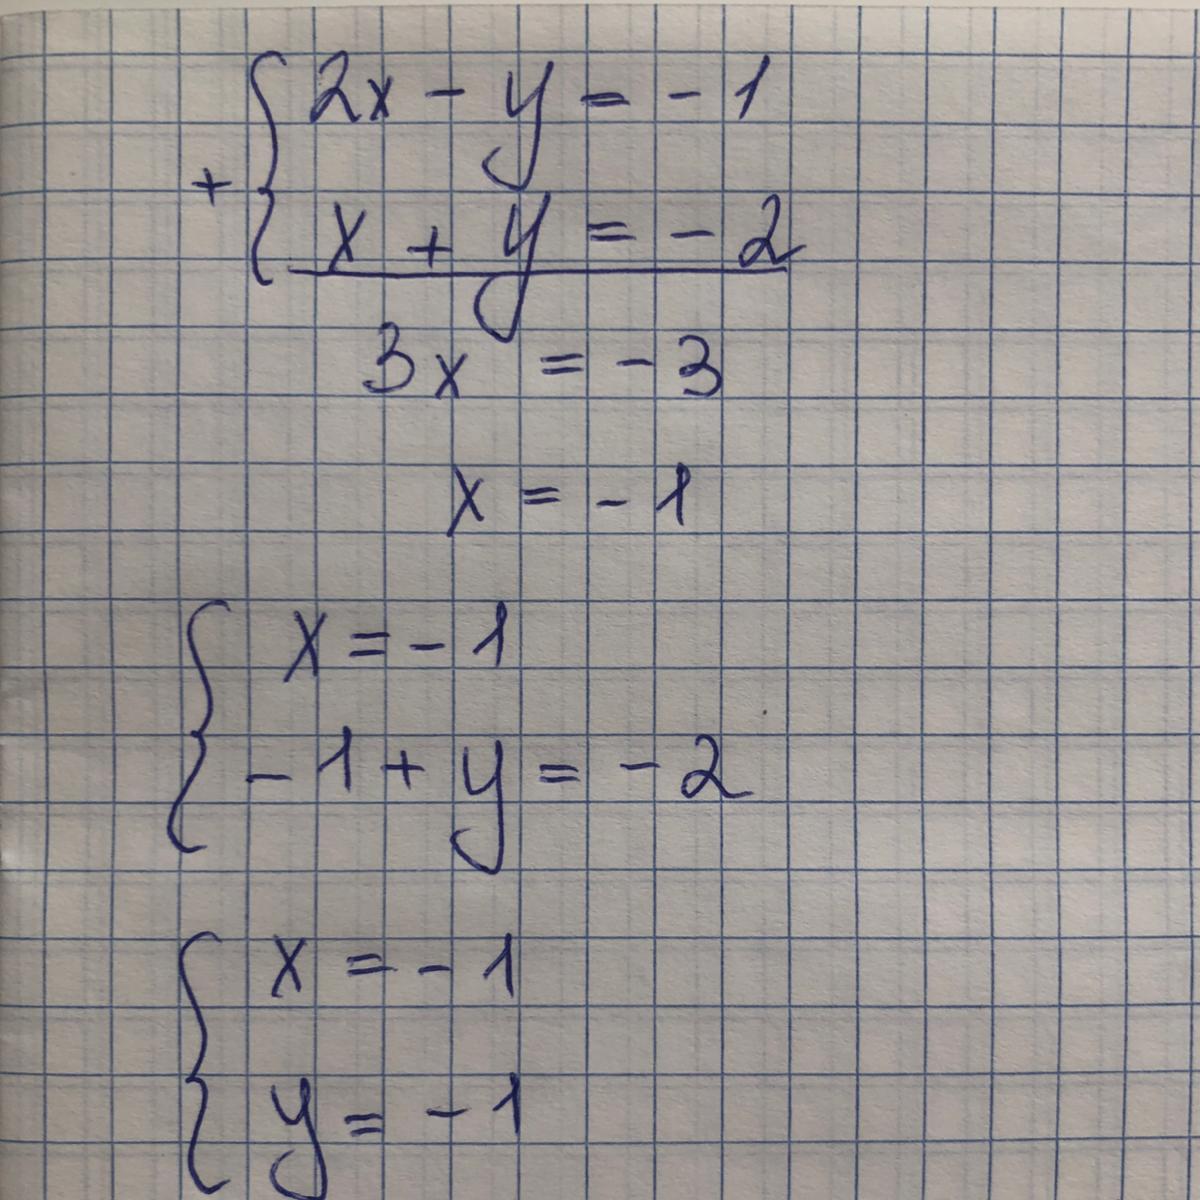 2x - y = - 1
+
x + y = - 2
3x = - 3
x = - 1
x = - 1
- 1 + y = - 2
x = - 1
y = - 1